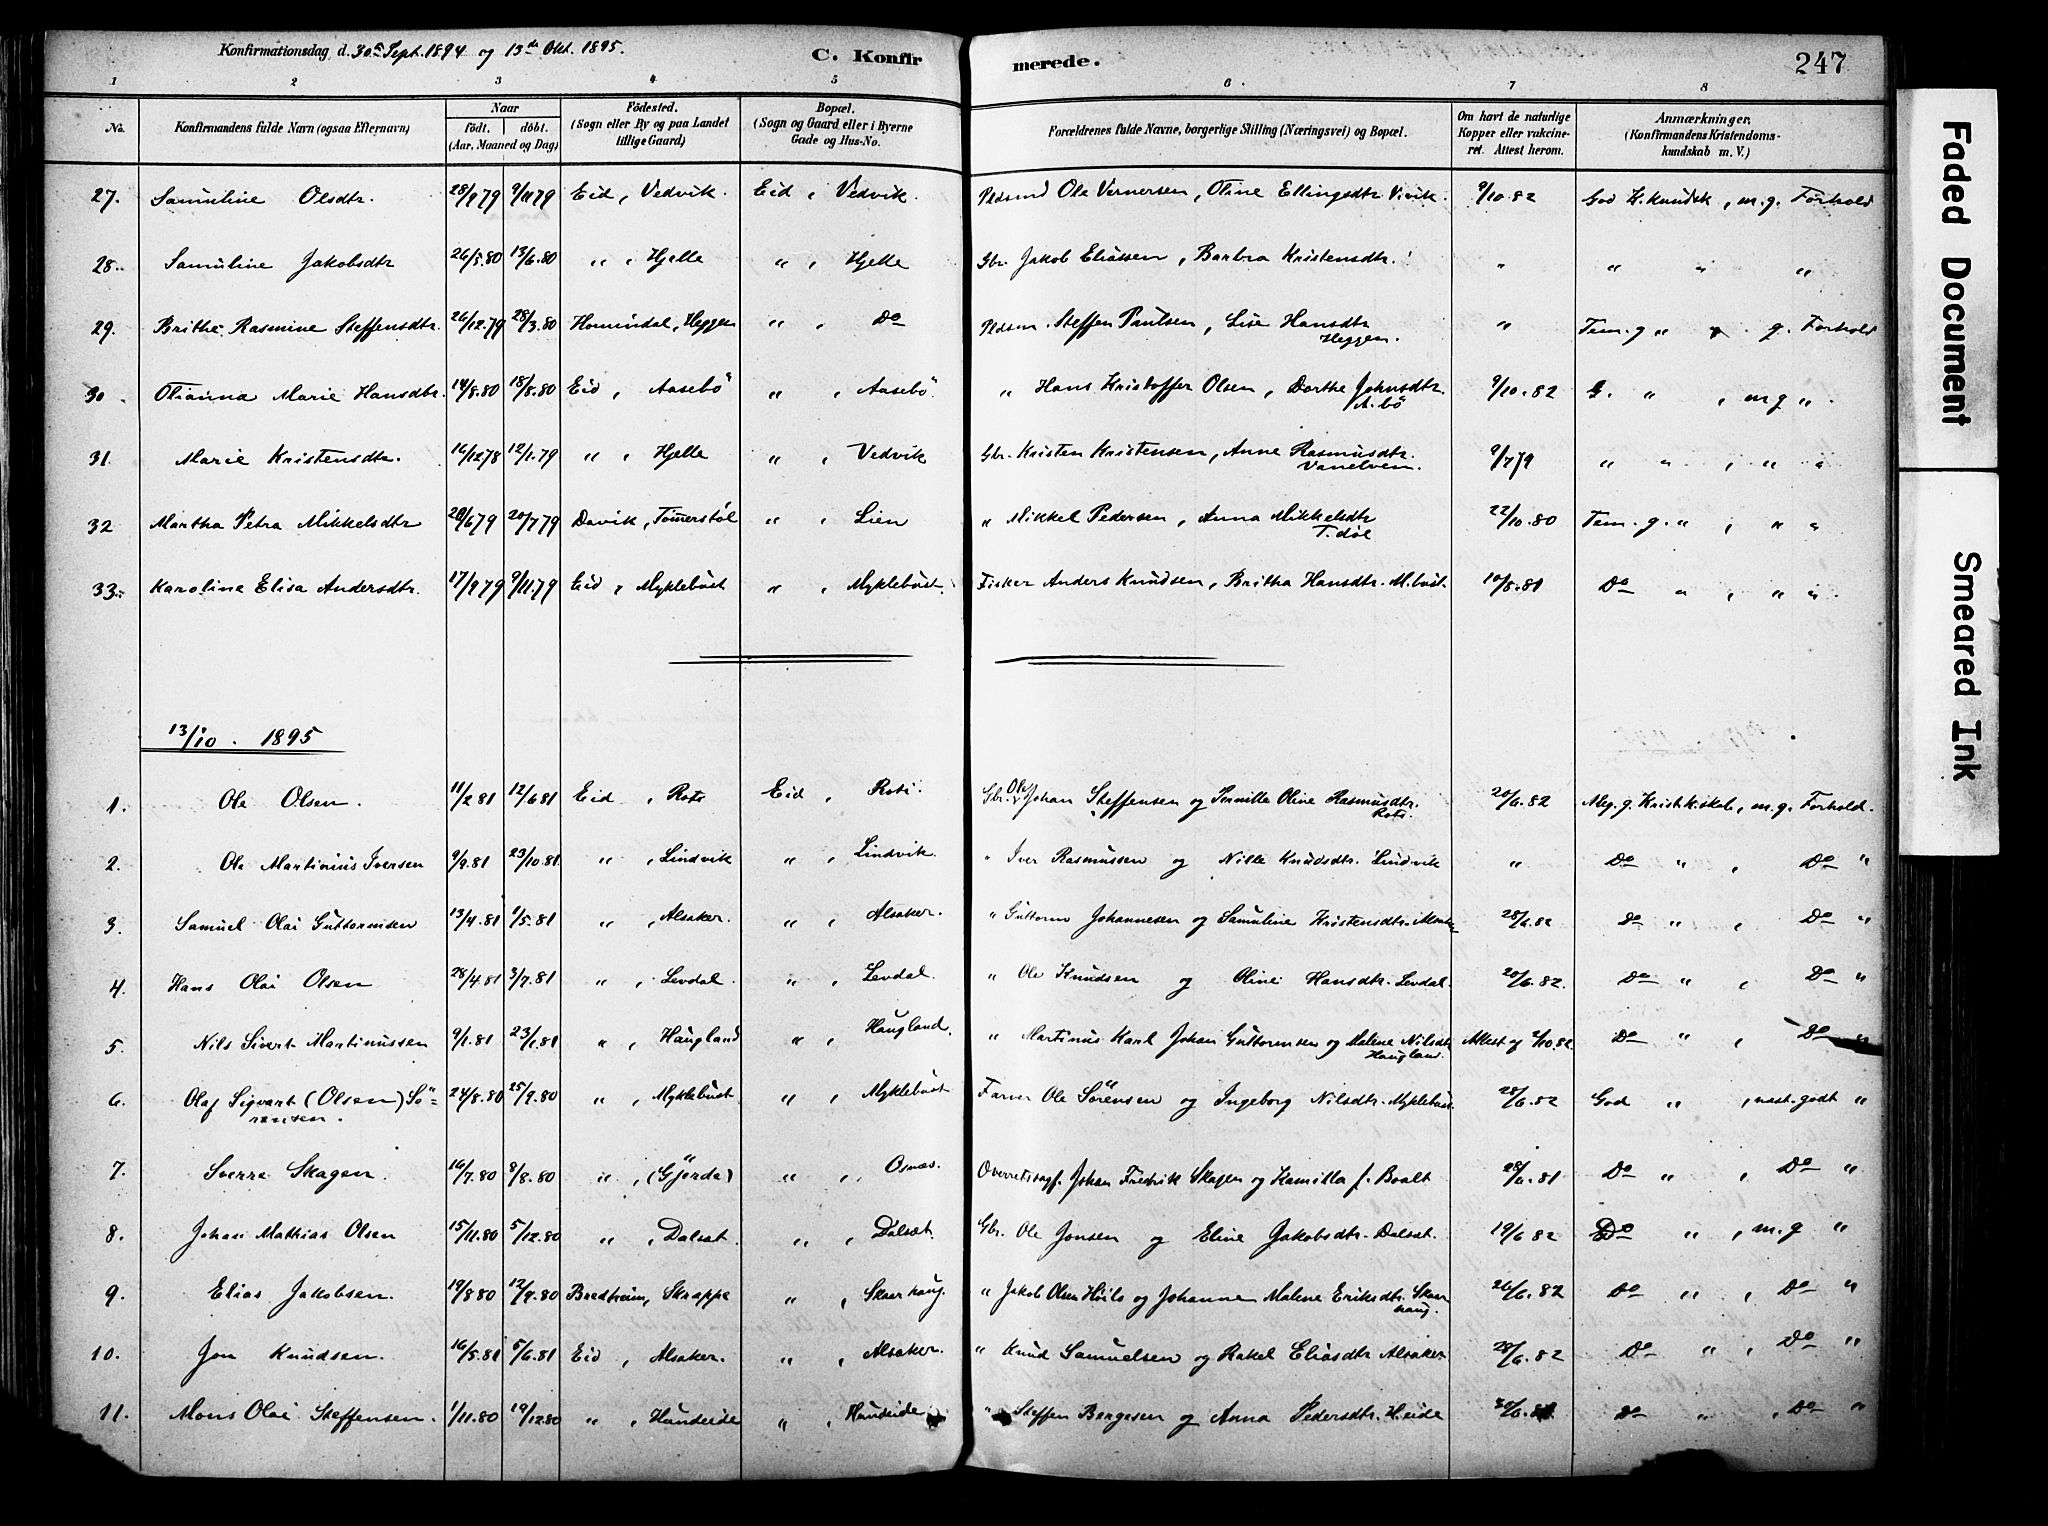 Konfirmationsdag d. 30te Sept. 1894 og 13de Okt. 1895.
C. Konfirmerede.
247
1 2 3 4 5 6. 7 8
No. Konfirmandens fulde Navn (ogsaa Efternavn) Naar födt. döbt. (Aar, Maaned og Dag) Födested. (Sogn eller By og paa Landet tillige Gaard) Bopæl. (Sogn og Gaard eller i Byerne Gade og Hus-No. Forældrenes fulde Navne, borgerlige Stilling (Næringsvei) og Bopæl. Om havt de naturlige Kopper eller vakcineret. Attest herom. Anmærkninger. (Konfirmandens Kristendomskundskab m. V.)
27. Samuline Olsdtr. 28/9 79 9/11 79 Eid, Vedvik. Eid, Vedvik. Pldsmd Ole Vernersen, Oline Ellingsdtr. V.vik. 9/10.82 God K.kundsk, m.g. Forhold
28. Samuline Jakobsdtr 26/5.80 13/6.80 " , Hjelle " , Hjelle Gbr. Jakob Eliassen, Barbra Kristensdtr. " " " "
29. Brithe Rasmine Steffensdtr. 26/12.79 28/3.80 Hornindal, Heggen " , Do Pldsm. Steffen Paulsen, Lise Hansdtr Heggen. " Tem. g " g. Forhold
30. Olianna Marie Hansdtr. 14/8.80 18/8.80 Eid, Aasebö " , Aasebö " Hans Kristoffer Olsen, Dorthe Johnsdtr. A.bö 9/10.82 G. " , m g ".
31. Marie Kristensdtr. 16/12 78 12/1.79 " , Hjelle " , Vedvik Gbr. Kristen Kristensen, Anne Rasmusdtr. 9/7 79 " " , " "
32 Martha Petra Mikkelsdtr 20/6 79 20/7 79 Davik, " , Lien " Mikkel Pedersen, Anna Mikkelsdtr 22/10.80 Tem. g. " , " "
33. Karoline Elisa Andersdtr. 17/9 79 9/11.79 Eid, Myklebust " , Myklebust. Fisker Anders Knudsen, Britha Hansdtr. M.bust. 10/8.81 Do " , " "
13/10. 1895
1. Ole Olsen. 11/2 81 12/6 81 Eid, Rots Eid, Gbr. Ole Johan Steffensen og Pernille Oline Rasmusdtr. Rots. 20/6.82 Meg. g. Krist.k.skab, m.g. Forhold.
2. Ole Martinius Iversen 9/9.81 23/10.81 " , Lindvik " , Lindvik. " Iver Rasmussen og Nille Knudsdtr. Lindvik " Do " , Do "
3. Samuel Olai Guttormsen 13/4.81 1/5.81 " , Alsaker. " , Alsaker. " Guttorm Johannesen og Samuline Kristensdtr. 28/6.82 Do " , Do "
4. Hans Olai Olsen 28/4.81 3/7.81 " , Levdal. " , Levdal. " Ole Knudsen og Oline Hansdtr. Levdal. 20/6.82. Do " , Do "
5. Nils Sivert Martinussen 9/1.81 23/1.81 " , Haugland " , Haugland. " Martinus Karl Johan Guttormsen og Malene Nilsdtr. Haugland. Attest af 2/10.82. Do " , Do "
6. Olaf Sigvart (Olsen) Sörensen. 24/8.80 25/9.80 " , Myklebust " , Myklebust Farver Ole Sörensen og Ingeborg Nilsdtr. Myklebust. 28/6.82 God " , godt "
7. Sverre Skagen. 16/7.80 8/8.80 " , (Gjerde) " , Osnes. Overretssagf. Johan Fredrik Skagen og Kamilla f. Boalt 28/6.81 Do " , Do "
8. Johan Mathias Olsen 15/11.80 5/12.80 " , Dalsæt. " , Dalsæt. Gbr. Ole Jonsen og Eline Jakobsdtr. Dalsæt. 19/6 82 Do " , m.g "
9. Elias Jakobsen. 19/8 80 12/9.80 Bredheim, Skrappe " , Skaarhaug. " Jakob Olsen og Johanne Malene Eriksdtr. Skaarhaug. 26/6.82 Do " , Do "
10. Jon Knudsen. 16/5.81 5/6.81 Eid, Alsaker. " , Alsaker. " Knud Samuelsen og Rakel Eliasdtr Alsaker 28/6.82 Do " , Do "
11. Mons Olai Steffensen. 1/11.80 19/12.80 " , Hundeide " , Hundeide " Steffen Børgesen og Anna Pedersdtr. Heide Do " , Do "
Faded Document
Smeared Ink